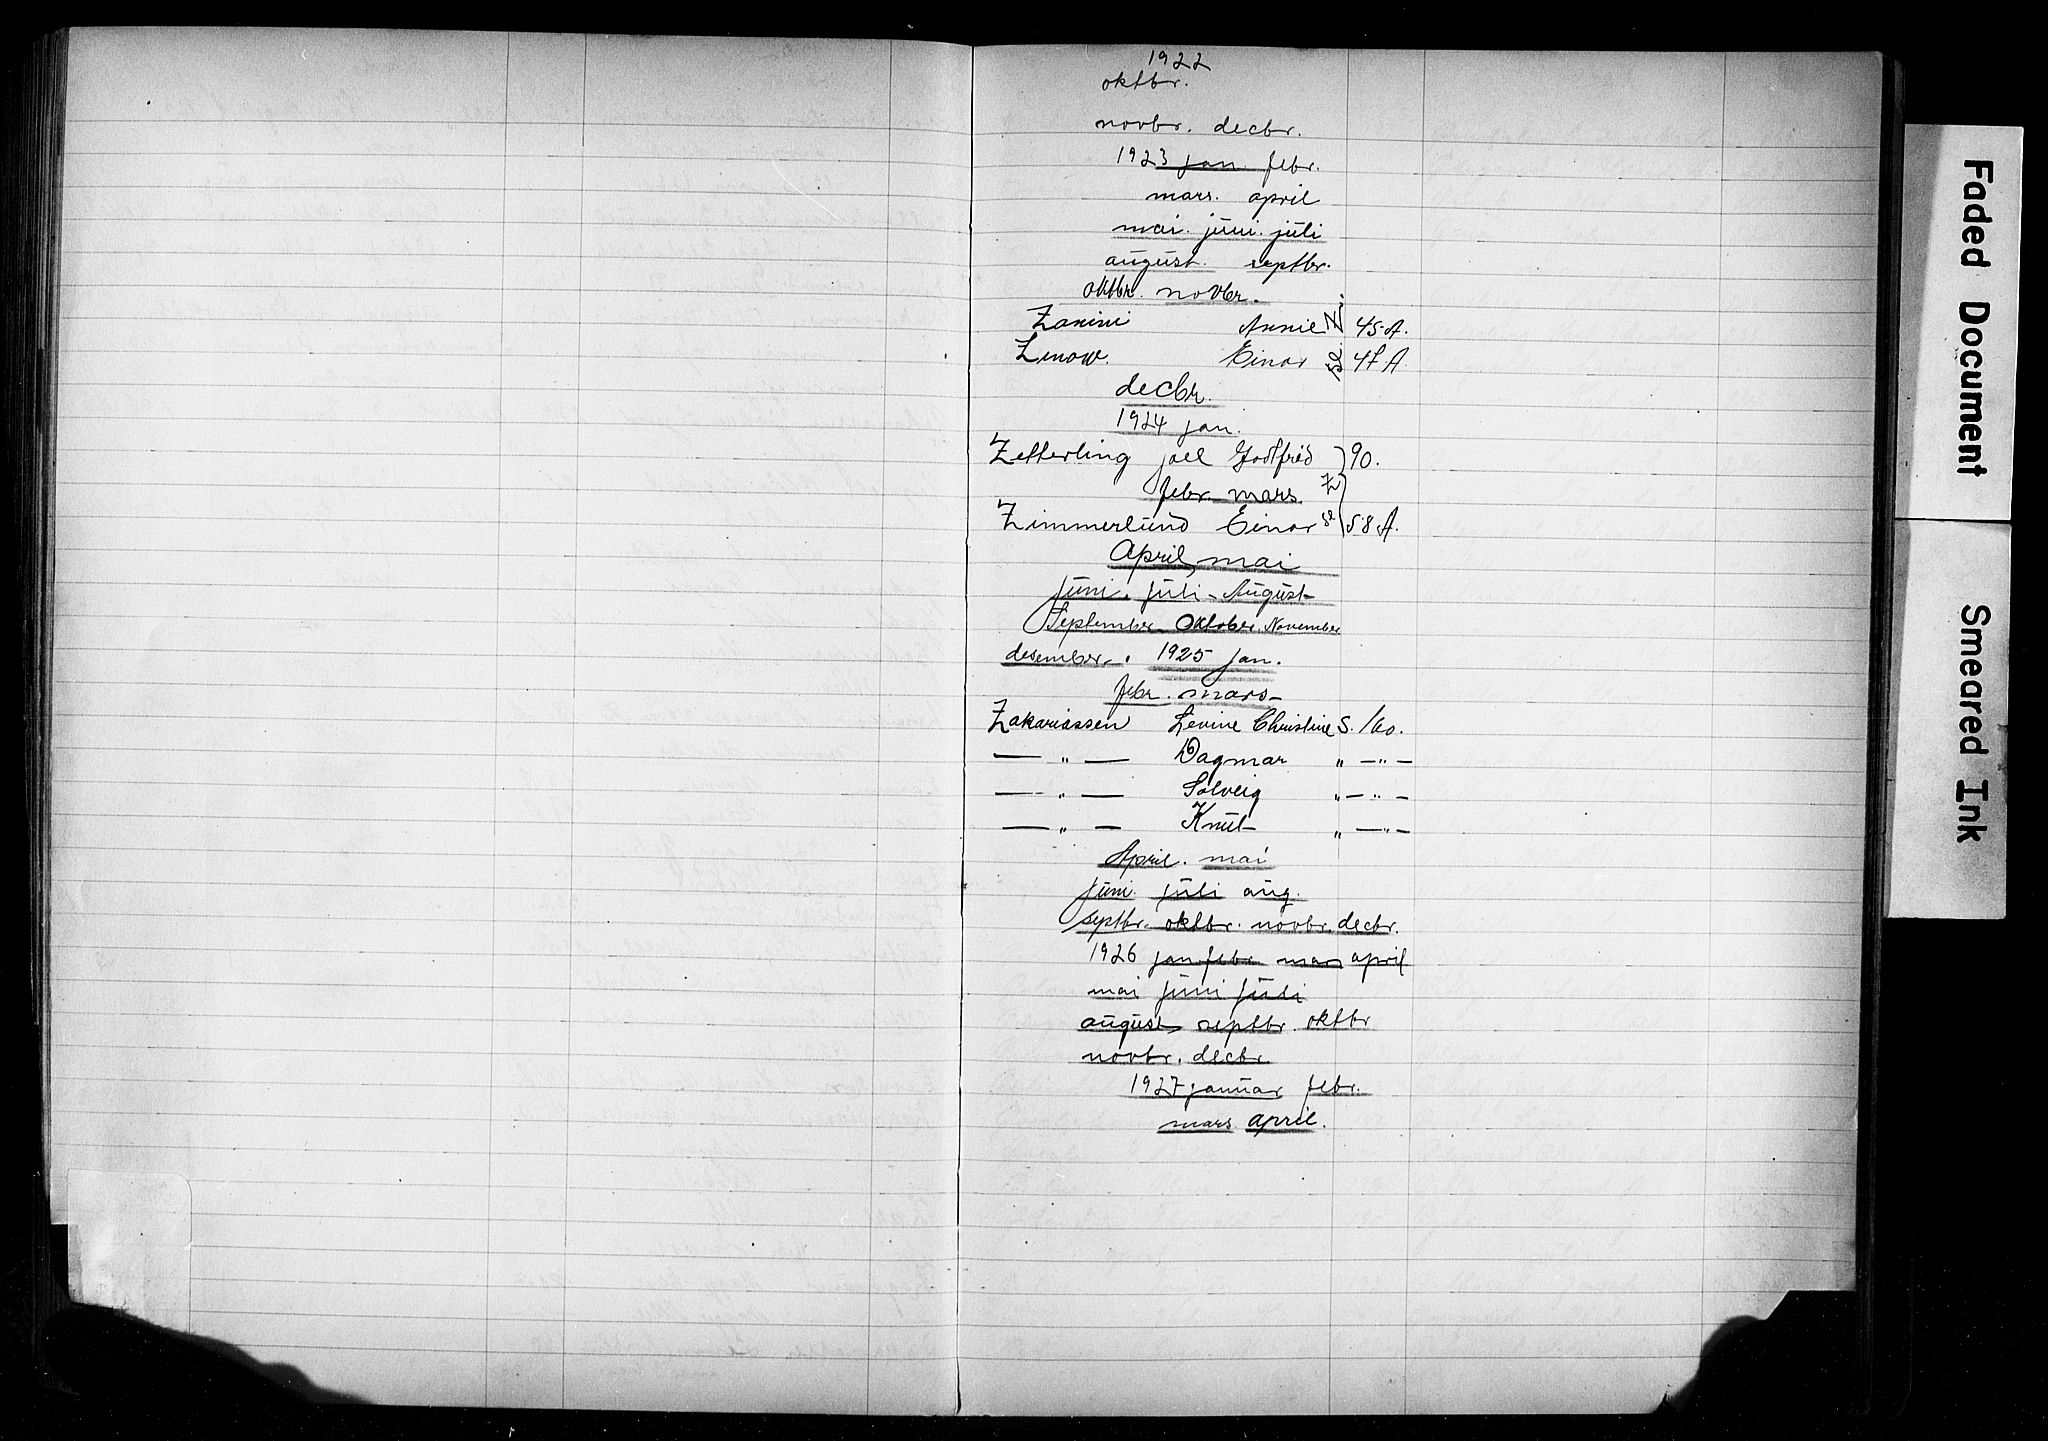 1922
oktbr.
novbr. decbr.
1923 jan. febr.
mars. april
mai. juni. juli
august. septbr.
oktbr. novbr.
Zanini Annie 45 A.
Einar 47 A.
decbr.
1924 jan.
Zetterling Joel Godtfred 90.
febr. mars.
Zimmerlund Einar 58 A.
April, mai
juni. juli - August
September - Oktober. November
desember. 1925 jan.
febr. mars
Zakariassen Levine Christine S. 160.
— " — Dagmar " — " —
— " — Solveig " — " —
— " — Knut " — " —
April. mai
juni. juli aug.
septbr. oktbr. novbr. decbr.
1926 jan febr. mars april
mai juni juli
august, septbr. oktbr
novbr. decbr.
1927 januar febr.
mars april.
Faded Document
Smeared Ink